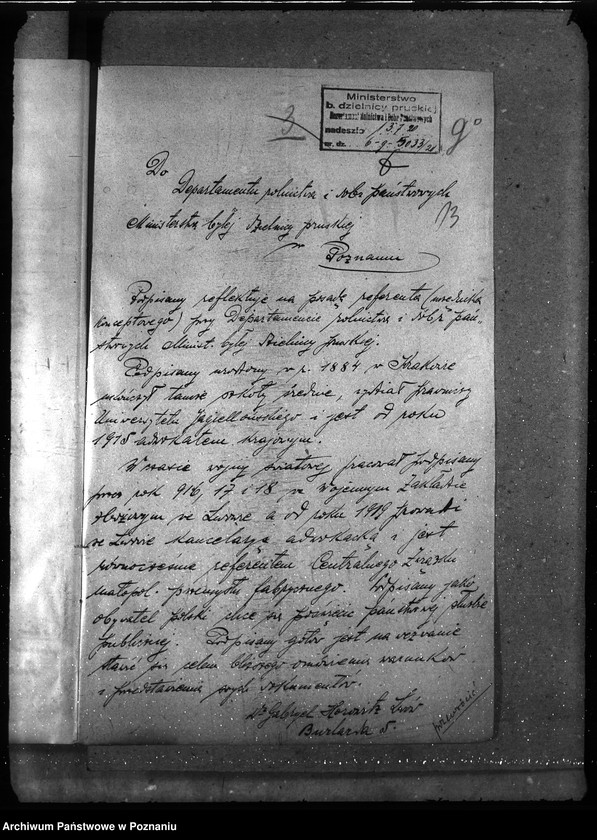 Ministerstwo
b. dzielnicy pruskiej
Departament Rolnictwa i Dóbr Państwowych
nadeszło 13/7 20
nr. dz.
3
13
Do
Departamentu rolnictwa i dóbr państwowych
Ministerstwa byłej dzielnicy pruskiej
w Poznaniu
Podpisany reflektuje na posadę referenta (urzędnika
konceptowego) przy Departamencie rolnictwa i dóbr pań-
stwowych Minist. byłej dzielnicy pruskiej.
Podpisany urodzony w r. 1884 w Krakowie
ukończył tamże szkoły średnie, wydział prawniczy
Uniwersytetu Jagiellońskiego i jest od roku
1915 adwokatem krajowym.
W czasie wojny światowej pracował podpisany
przez rok 916, 17 i 18 w Wojennym Zakładzie
zbożowym we Lwowie a od roku 1919 prowadzi
we Lwowie kancelarię adwokacką i jest
równocześnie referentem Centralnego Związku
małopol. przemysłu fabrycznego. Podpisany jako
obywatel polski chce się poświęcić państwowej służbie
publicznej. Podpisany gotów jest na wezwanie
stawić się celem bliższego omówienia warunków
i przedstawienia swych dokumentów.
Dr Gabryel Lwów
5.
Archiwum Państwowe w Poznaniu